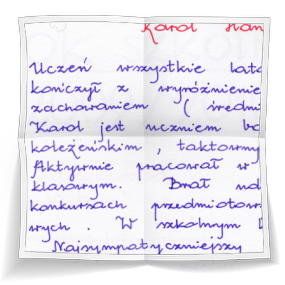 Karol Han
Uczeń wszystkie lata
kończył z wyróżnienie
zachowaniem ( średni
Karol jest uczniem ba
koleżeńskim, taktowny
Aktywnie pracował w
klasowym. Brał ud
konkursach przedmiotow
wych. W szkolnym
Najsympatyczniejszy